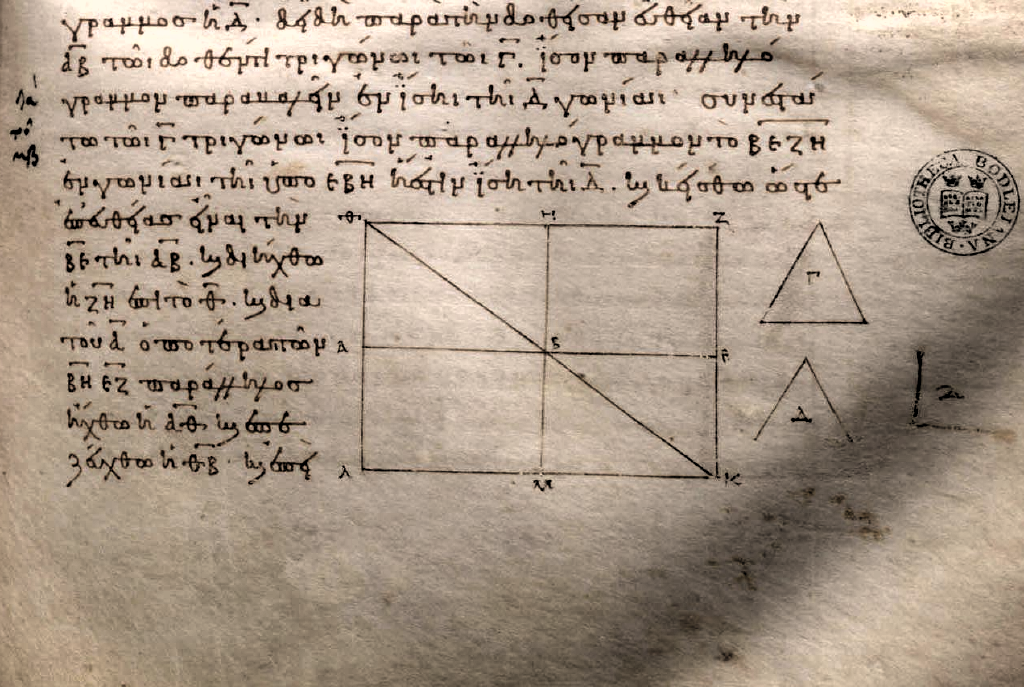 γραμμος ἡ Δ· δεῖ δὴ παρὰ τὴν δοθεῖσαν εὐθεῖαν τὴν
ΑΒ τῶι δοθέντι τριγώνωι τῶι Γ. ἴσον παραλληλό
γραμμον παραβαλεῖν ἐν ἴσηι τῆι Δ γωνίαι συνεστά
τω τῶι Γ τριγώνωι ἴσον παραλληλόγραμμον τὸ ΒΕΖΗ
ἐν γωνίαι τῆι ὑπὸ ΕΒΗ ἥ ἐστιν ἴση τῆι Δ. καὶ κείσθω ὥστε
ἐπευθείας εἶναι τὴν
ΒΕ τῆι ΑΒ. καὶ διήχθω
ἡ ΖΗ ἐπὶ τὸ Θ. καὶ διὰ
τοῦ Α ὁποτέραι τῶν
ΒΗ ΕΖ παράλληλος
ἤχθω ἡ ΑΘ καὶ ἐπε
ζεύχθω ἡ ΘΒ· καὶ ἐπεὶ
Θ Η Ζ
Γ
Α Β Ε
Δ
Λ Μ Κ
BIBLIOTHECA BODLEIANA